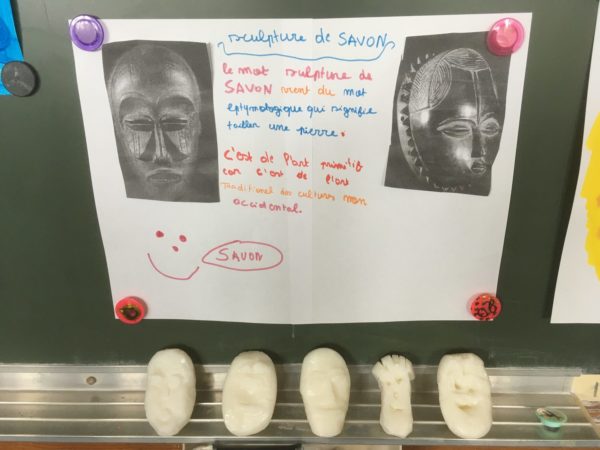 sculpture de SAVON
le mot sculpture de
SAVON vient du mot
eptymologique qui signifie
tailler une pierre.
C'est de l'art primitif
car c'est de l'art
traditionnel des cultures non
accidental.
SAVON